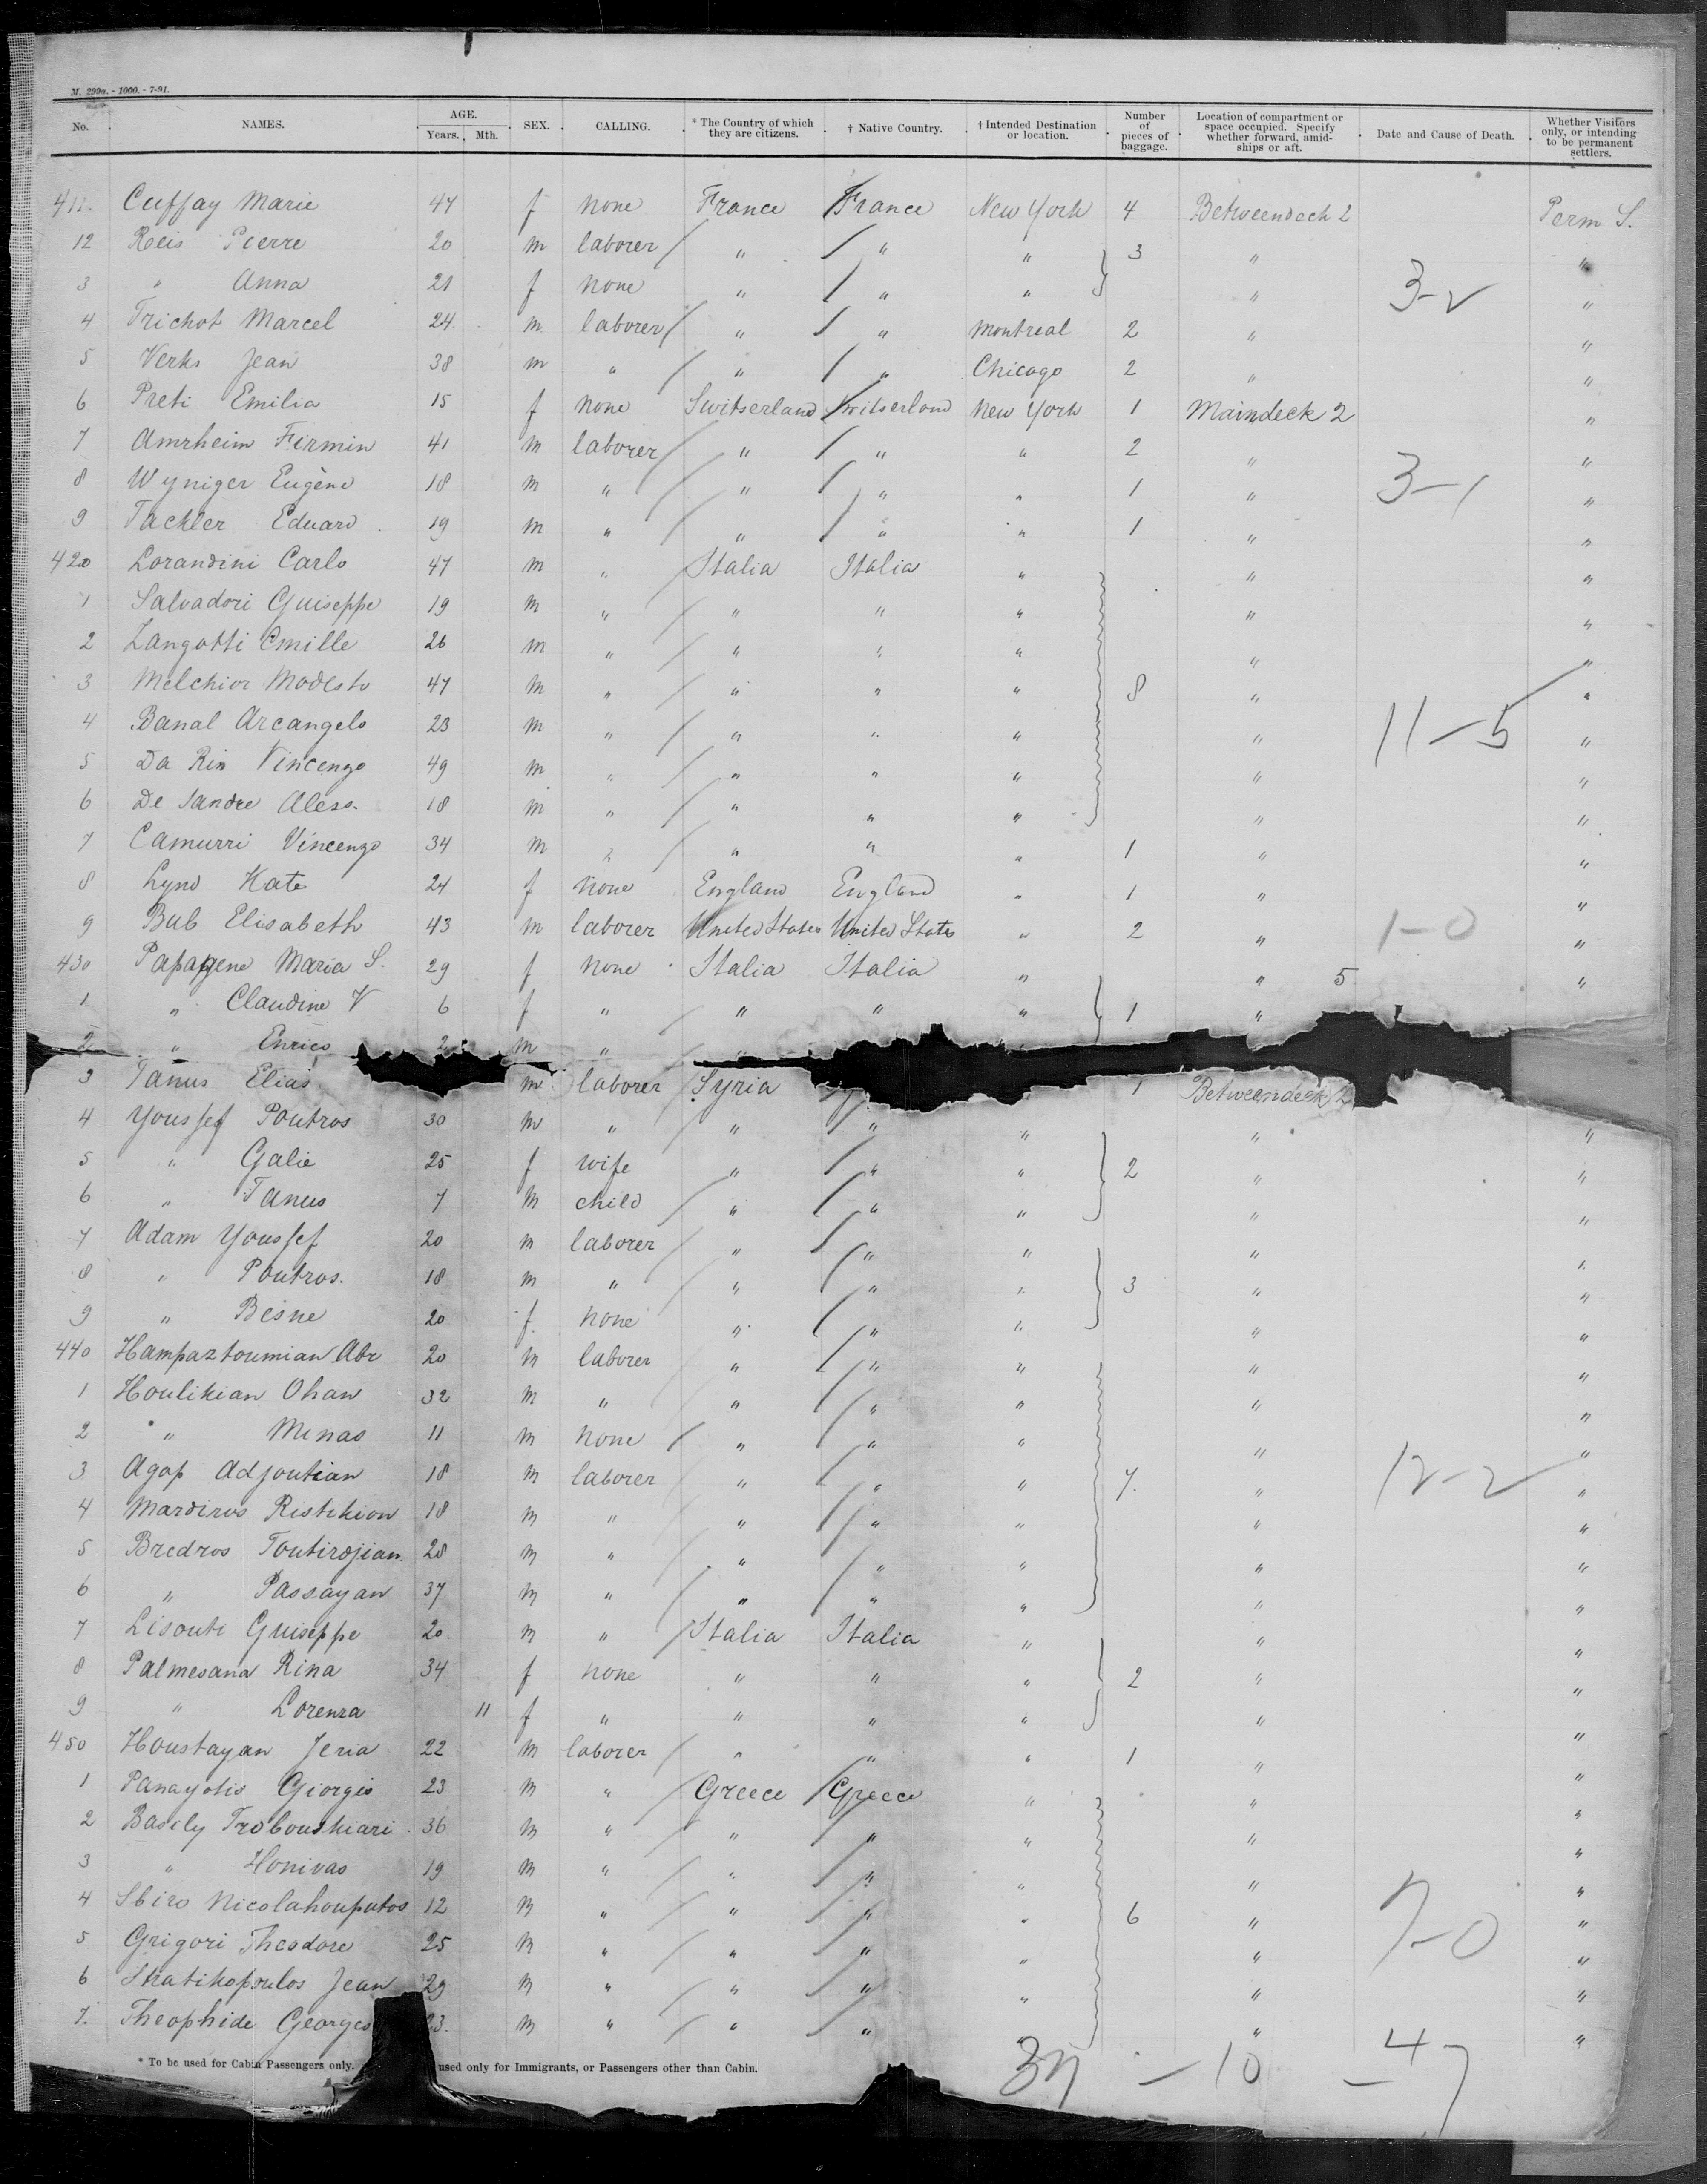 M. 299a. - 1000. - 7-91.
No. NAMES. AGE. Years. Mth. SEX. CALLING. * The Country of which they are citizens. † Native Country. † Intended Destination or location. Number of pieces of baggage. Location of compartment or space occupied. Specify whether forward, amidships or aft. Date and Cause of Death. Whether Visitors only, or intending to be permanent settlers.
411. Cuffay Marie 47 f none France France New York 4 Betweendeck 2 Perm S.
12 Reis Pierre 20 m laborer " " " 3 " "
3 " Anna 21 f none " " " " 3-2 "
4 Trichot Marcel 24 m laborer " " Montreal 2 " "
5 Verks Jean 38 m " " " Chicago 2 " "
6 Preti Emilia 15 f none Switserland Switserland New York 1 Maindeck 2 "
7 Amrheim Firmin 41 m laborer " " " 2 " "
8 Wyniger Eugène 18 m " " " " 1 " 3-1 "
9 Tachler Eduard 19 m " " " " 1 " "
420 Lorandini Carlo 47 m " Italia Italia " " "
1 Salvadori Guiseppe 19 m " " " " " "
2 Zangotti Emille 26 m " " " " " "
3 Melchior Modesto 47 m " " " " 8 " "
4 Banal Arcangelo 23 m " " " " " 11-5 "
5 Da Rin Vincenzo 49 m " " " " " "
6 De Sandre Aless. 18 m " " " " " "
7 Camurri Vincenzo 34 m " " " " 1 " "
8 Lynd Kate 24 f none England England " 1 " "
9 Bub Elisabeth 43 m laborer United States United States " 2 " 1-0 "
430 Maria S. 29 f none Italia Italia " " 5 "
1 " Claudine V 6 f " " " " 1 "
2 " Enrico 2 m " "
3 Tanus Elias m laborer Syria 1 Betweendeck 2
4 Youssef Poutros 30 m " " " " " "
5 " Galie 25 f wife " " " 2 " "
6 " Tanus 7 m child " " " " "
7 Adam Youssef 20 m laborer " " " " "
8 " Poutros. 18 m " " " " 3 " "
9 " Besne 20 f. none " " " " "
440 Hampaztoumian Abr 20 m laborer " " " " "
1 Houlikian Ohan 32 m " " " " " "
2 " Minas 11 m none " " " " "
3 Agop Adjoutian 18 m laborer " " " 7. " 12-2 "
4 Mardiros Ristikion 18 m " " " " " "
5 Bredros Toutirdjian 28 m " " " " " "
6 " Passayan 37 m " " " " " "
7 Lisouti Guiseppe 20 m " Italia Italia " " "
8 Palmesana Rina 34 f none " " " 2 " "
9 " Lorenza 11 f " " " " " "
450 Houstayan Jeria 22 m laborer " " " 1 " "
1 Panayotis Giorgis 23 m " Greece Greece " " "
2 Basily Troboukiari 36 m " " " " " "
3 " Honivas 19 m " " " " " "
4 Sbiro Nicolahouputos 12 m " " " " 6 " 7-0 "
5 Grigori Theodore 25 m " " " " " "
6 Stratikopoulos Jean 29 m " " " " " "
7. Theophide Georges 23. m " " " " " "
* To be used for Cabin Passengers only. used only for Immigrants, or Passengers other than Cabin.
37 - 10 - 47